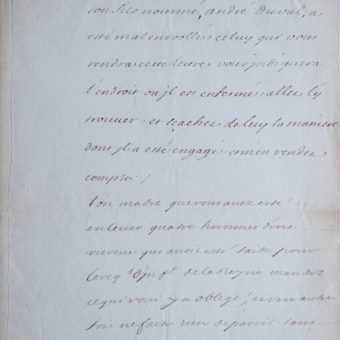 son fils nommé, andré Duval, a
esté mal enrollé, celuy qui vous
rendra cette lettre vous indiquera
l'endroit ou jl en enfermé, allez ly
trouuer, et tachez de luy la maniere
dont jl a esté engagé m'en rendez
compte./.
lon ma dit que vous auez esté
enleuer quatre hommes d'une
recreue qui auoit esté faite pour
le de la Reyne mandez
ce qui vous y a obligé, et une autre
fois ne faites rien de pareil sans